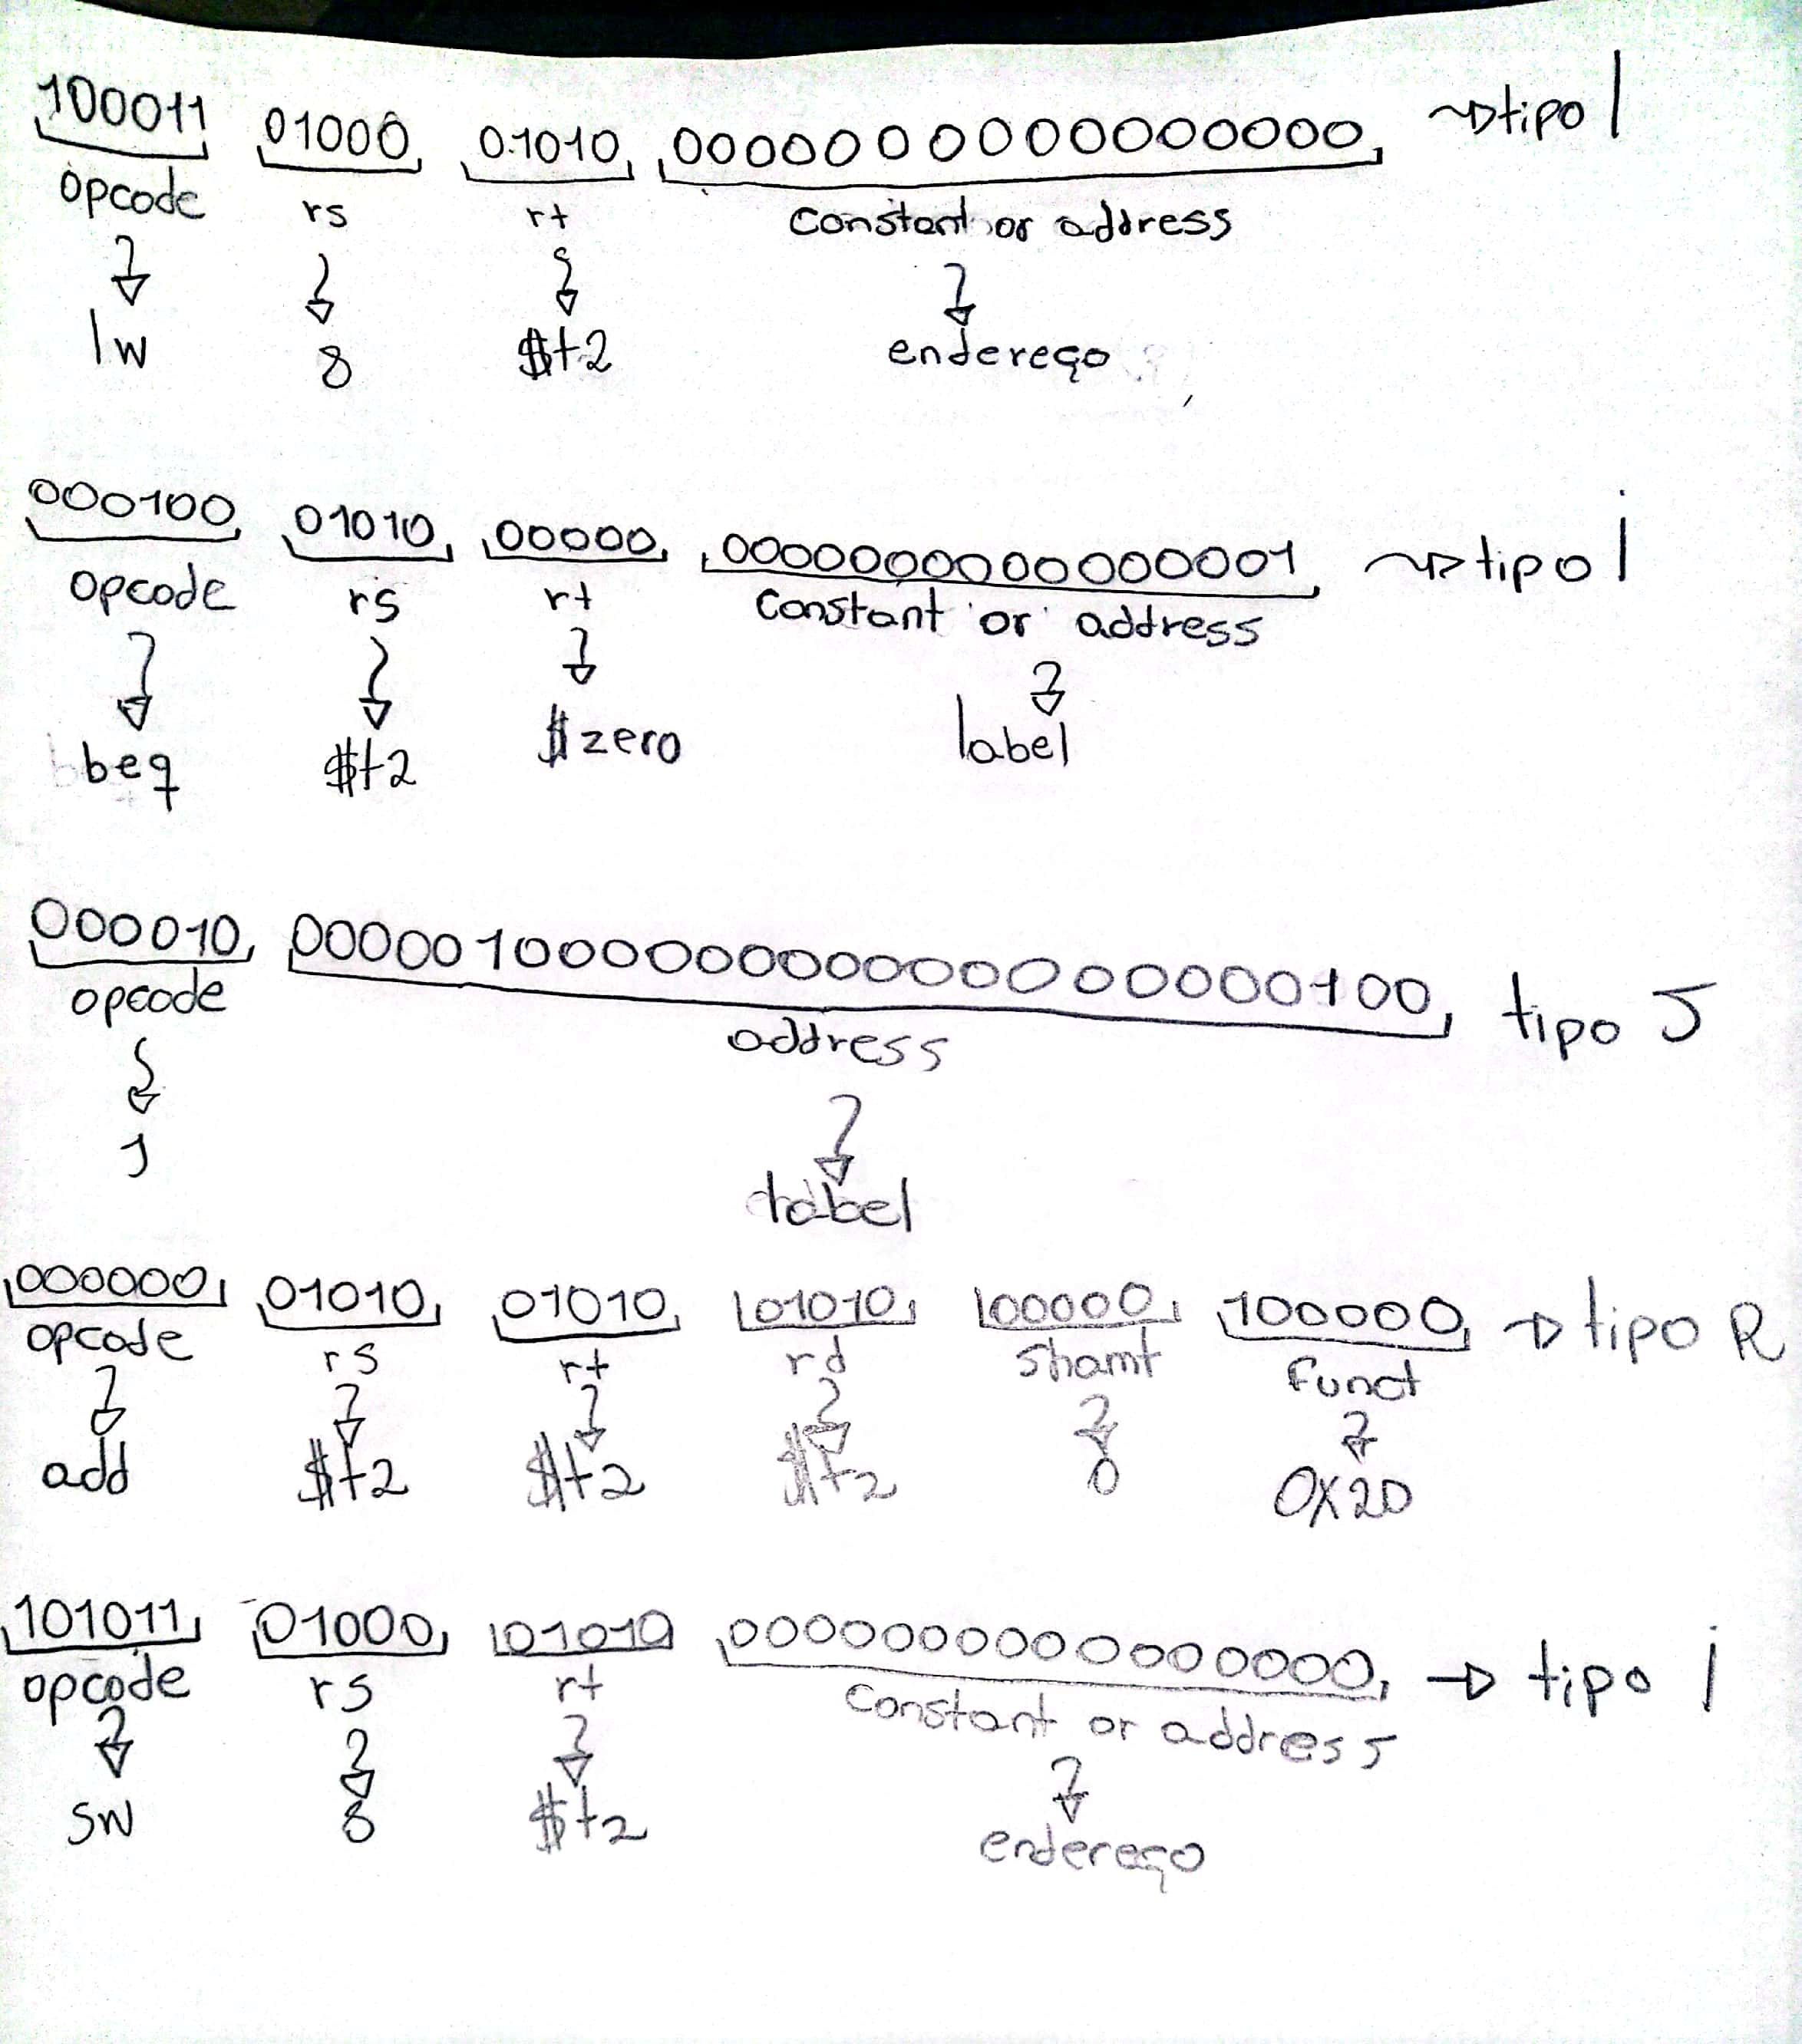 100011 01000 01010 0000000000000000 ~> tipo I
opcode rs rt constant or address
lw 8 $t2 endereço
000100 01010 00000 0000000000000001 ~> tipo I
opcode rs rt constant or address
beq $t2 $zero label
000010 00000100000000000000000100 tipo J
opcode address
J label
000000 01010 01010 01010 00000 100000 → tipo R
opcode rs rt rd shamt funct
add $t2 $t2 $t2 0 0x20
101011 01000 01010 0000000000000000 → tipo I
opcode rs rt constant or address
sw 8 $t2 endereço